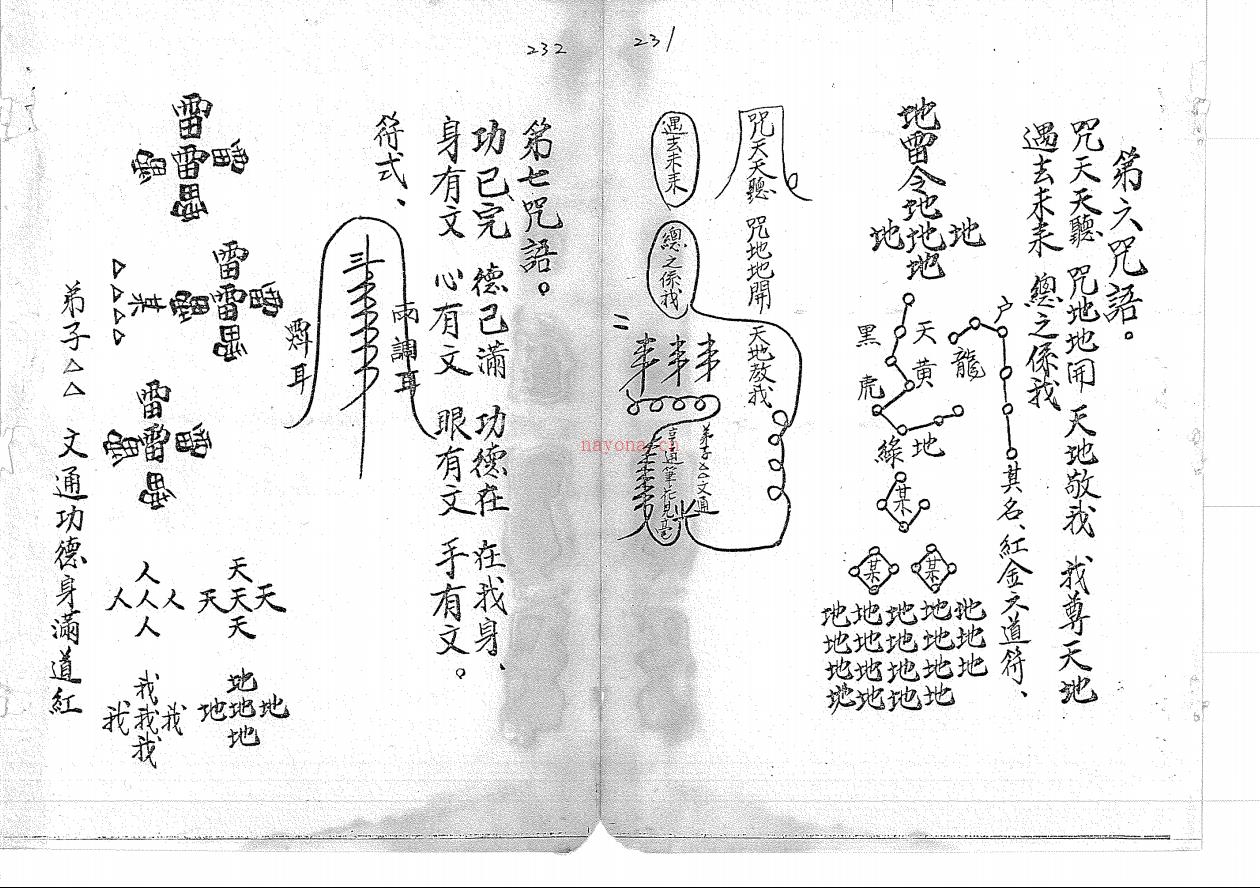 231
第六咒語。
咒天天聽 咒地地開 天地敬我 我尊天地
過去未來 總之係我
其名、紅金文道符、
户
龍
天黃
地
黑虎
綠
某
某 某
地地地地地
地地地地地
地地地地地
地地地地
地雷令地
地地地
地
咒天天聽 咒地地開 天地敬我
過去未來
總之係我
弟子△△文通
亨通筆花見毫
232
第七咒語。
功已完 德已滿 功德在 在我身、
身有文 心有文 眼有文 手有文。
符式、
雨調耳
耳
雷
雷
雷
雷
雷
雷
某
△△△△
天
天天天
天
人
人人人
人
地
地地地
地
我
我我我
我
弟子△△ 文通功德身滿道紅
nayona.cn